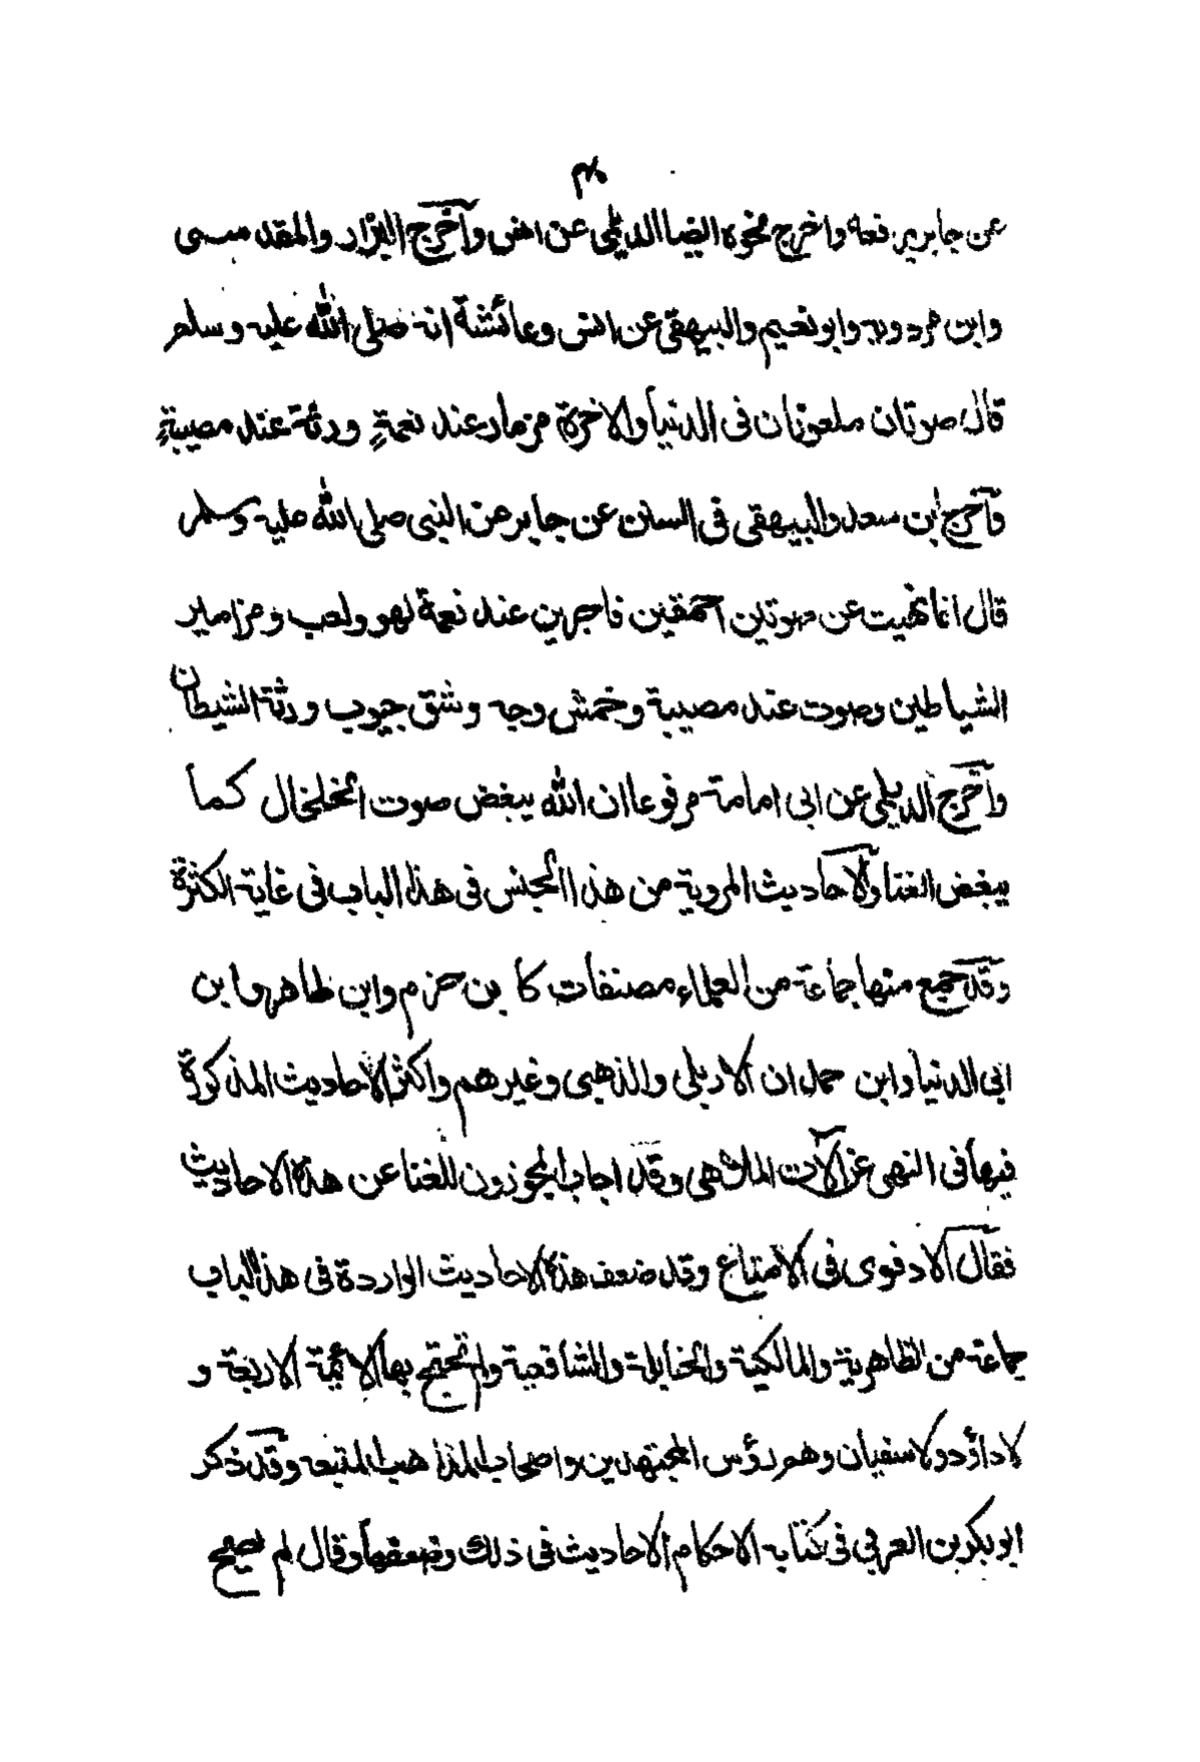 عن جابر يرفعه واخرج نحوه ايضا الديلمي عن انس وآخرج البزار والمقدسى
وابن مردويه وابو نعيم والبيهقي عن انس وعائشة انه صلى الله عليه وسلم
قال صوتان ملعونان فى الدنيا والاخرة مزمار عند نعمةٍ ورنة عند مصيبةٍ
وآخرج ابن سعد والبيهقى فى السنن عن جابر عن النبى صلى الله عليه وسلم
قال انما نهيت عن صوتين احمقين فاجرين عند نعمة لهو ولعب ومزامير
الشياطين وصوت عند مصيبة وخمش وجه وشق جيوب ورنة الشيطان
وآخرج الديلمى عن ابى امامة مرفوعا ان الله يبغض صوت الخلخال كما
يبغض الغنا والاحاديث المروية من هذا الجنس فى هذا الباب فى غاية الكثرة
وقد جمع منها جماعة من العلماء مصنفات كابن حزم وابن طاهر وابن
ابى الدنيا وابن حمدان الاربلى والذهبى وغيرهم واكثر الاحاديث المذكورة
فيها فى النهى عن آلات الملاهى وقد اجاب المجوزون للغنا عن هذه الاحاديث
فقال الادفوى فى الامتاع وقد ضعف هذه الاحاديث الواردة فى هذا الباب
جماعة من الظاهرية والمالكية والحنابلة والشافعية ولم تحتج بها الائمة الاربعة و
لا داؤد ولا سفيان وهم رؤس المجتهدين واصحاب المذاهب المتبعه وقد ذكر
ابو بكر بن العربي فى كتابه الاحكام الاحاديث فى ذلك وضعفها وقال لم يصح